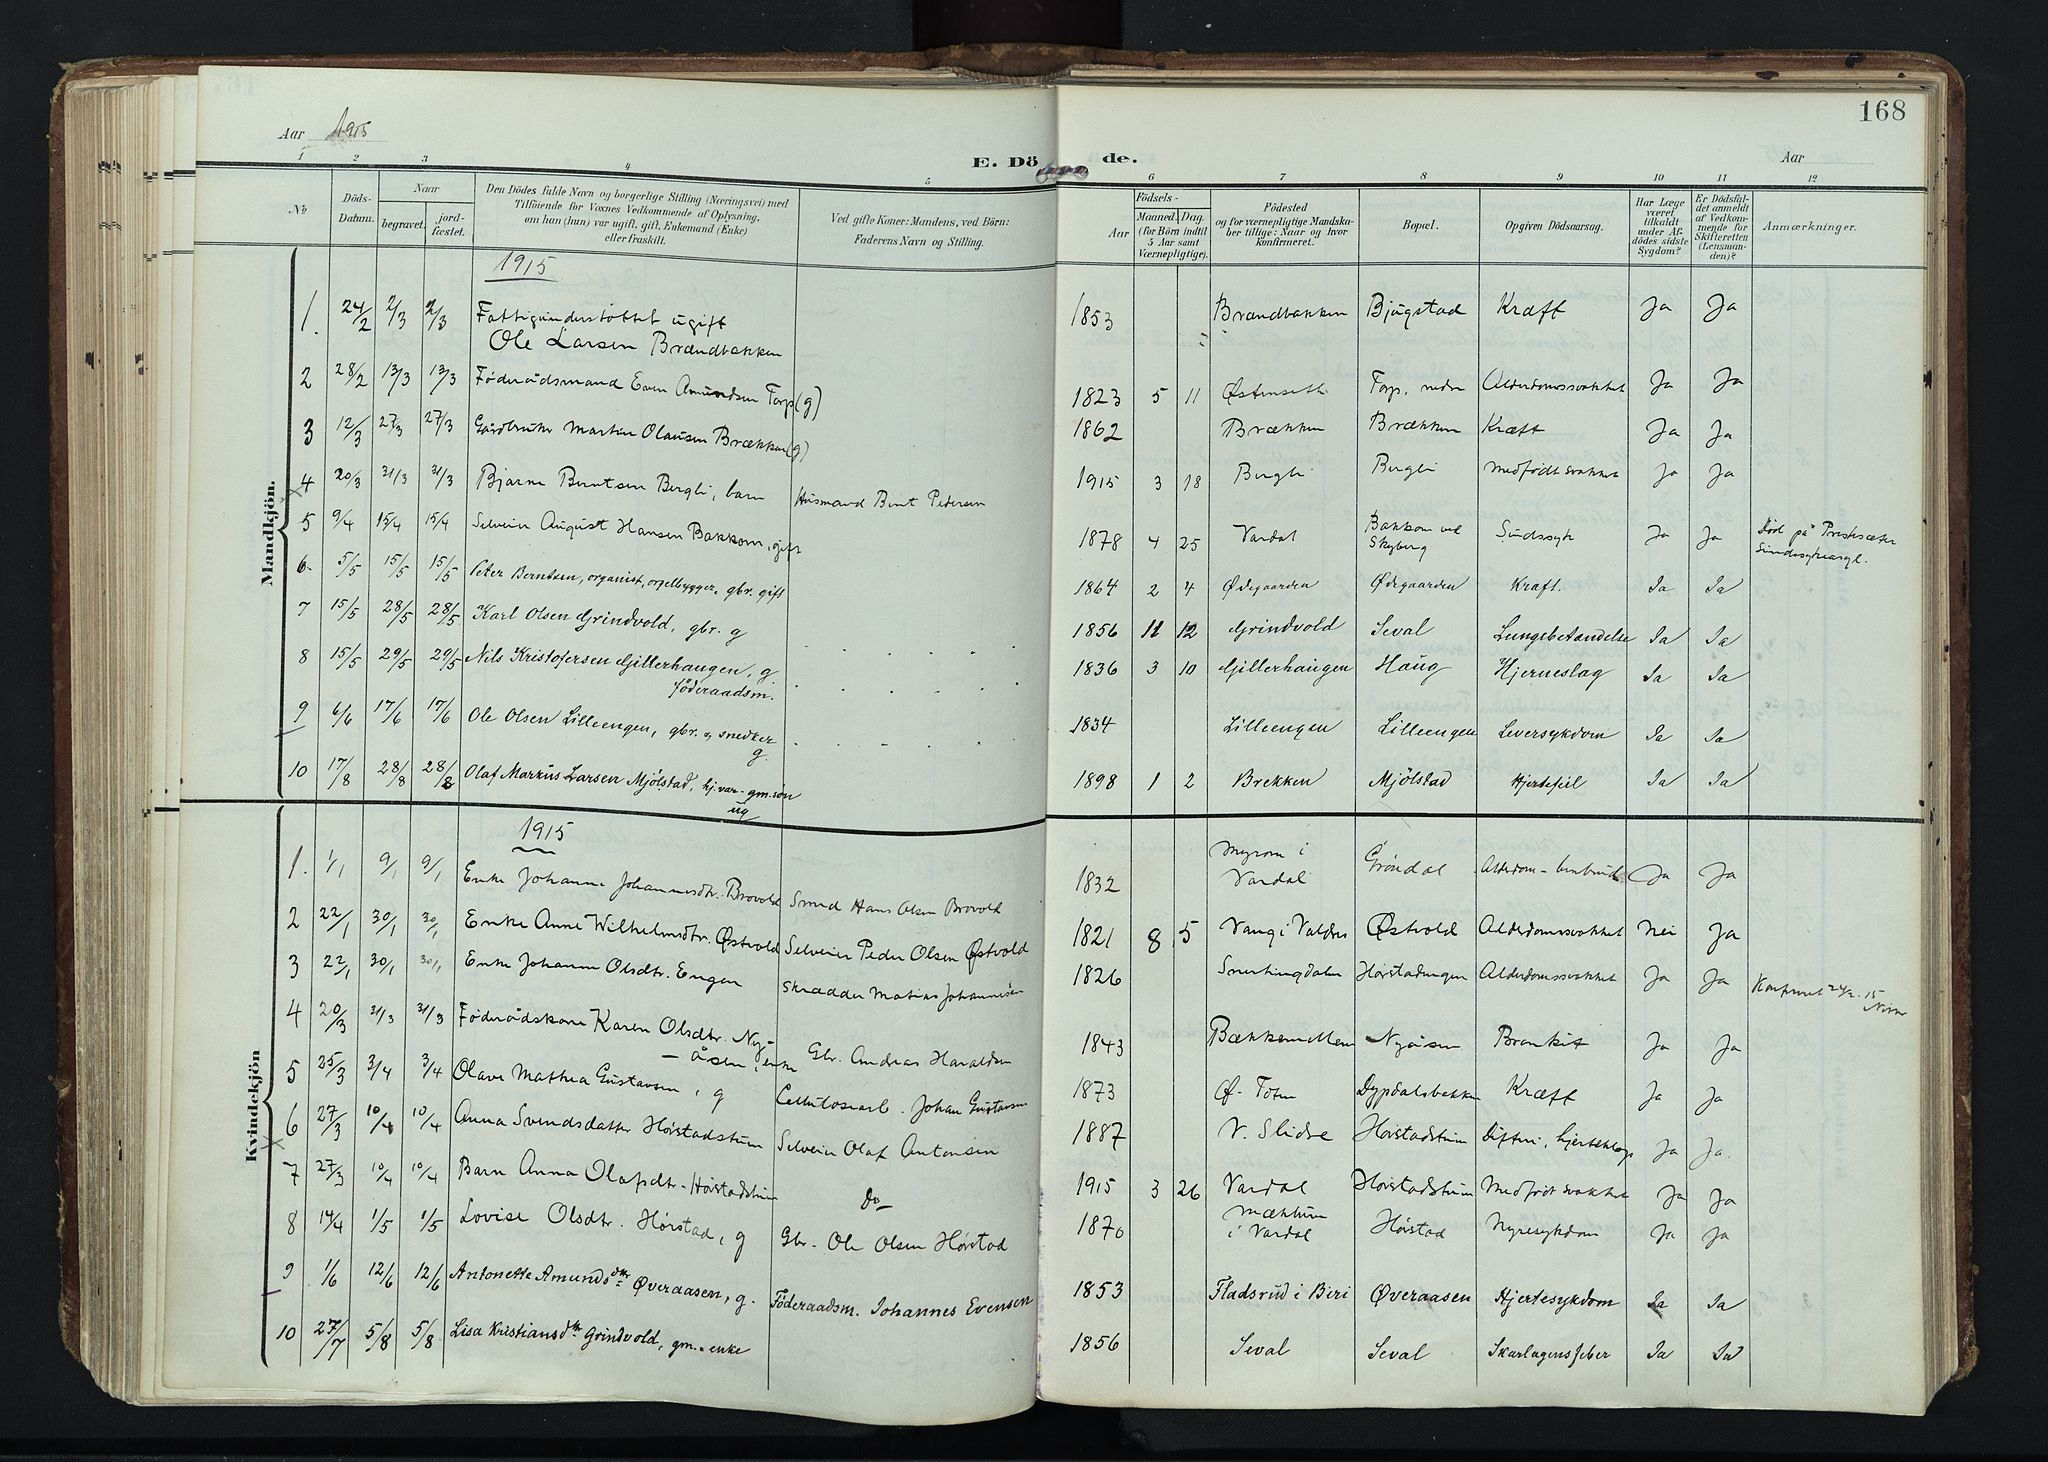 168
Aar 1915
E. Döde.
Aar
1 2 3 4 5 6 7 8 9 10 11 12
No
Döds-Datum.
Naar
begravet.
jord-fæstet.
Den Dödes fulde Navn og borgerlige Stilling (Næringsvei) med
Tilföiende for Voxnes Vedkommende af Oplysning,
om han (hun) var ugift, gift, Enkemand (Enke)
eller fraskilt.
Ved gifte Koner: Mandens, ved Börn:
Faderens Navn og Stilling.
Födsels-
Aar
Maaned. Dag.
(for Börn indtil
5 Aar samt
Værnepligtige).
Födested
og for værnepligtige Mandska-
ber tillige: Naar og hvor
Konfirmeret.
Bopæl.
Opgiven Dödsaarsag.
Har Læge
været
tilkaldt
under Af-
dödes sidste
Sygdom?
Er Dödsful-
det anmeldt
af Vedkom-
mende for
Skifteretten
(Lensman-
den)?
Anmærkninger.
Mandkjön.
1915
1. 24/2 2/3 2/3 Fattigunderstøttet ugift
Ole Larsen Brændbakken 1853 Brændbakken Bjugstad Kræft Ja Ja
2 28/2 13/3 13/3 Føderådsmand Even Amundsen Torp (g) 1823 5 11 Østenseth Torp, nedre Alderdomssvakhet Ja Ja
3 12/3 27/3 27/3 Gårdbruker Martin Olausen Brækken (g) 1862 Brækken Brækken Kræft Ja Ja
4 20/3 31/3 31/3 Bjarne Berntsen Bergli, barn Husmand Bernt Pedersen 1915 3 18 Bergli Bergli Medfødt svakhet Ja Ja
5 9/4 15/4 15/4 Selveier August Hansen Bakkom, gift 1878 4 25 Vardal Bakkom ved
Skyberg Sindssyk Ja Ja Død på Presteseter
Sindssykeasyl.
6. 5/5 15/5 15/5 Peter Berntsen, organist, orgelbygger, gbr. gift 1864 2 4 Ødegaarden Ødegaarden Kraft. Ja Ja
7 15/5 28/5 28/5 Karl Olsen Grindvold, gbr. g 1856 11 12 Grindvold Seval Lungebetændelse Ja Ja
8 15/5 29/5 29/5 Nils Kristofersen Gillerhaugen, g
föderaadsm. 1836 3 10 Gillerhaugen Haug Hjerneslag Ja Ja
9 6/6 17/6 17/6 Ole Olsen Lilleengen, gbr. & snedker
g. 1834 Lilleengen Lilleengen Leversykdom Ja Ja
10 17/8 28/8 28/8 Olaf Markus Larsen Mjölstad, hj.var. gm.søn
ug 1898 1 2 Brekken Mjölstad Hjertefeil Ja Ja
Kvindekjön
1915
1. 1/1 9/1 9/1 Enke Johanne Johannesdtr. Brovold Smed Hans Olsen Brovold 1832 Myrom i
Vardal Grøndal Alderdom - benbrud Ja Ja
2 22/1 30/1 30/1 Enke Anne Wilhelmsdtr. Østvold Selveier Peder Olsen Østvold 1821 8 5 Vang i Valdres Østvold Alderdomssvakhet Nei Ja
3 22/1 30/1 30/1 Enke Johanne Olsdtr. Engen Skrædder Matias Johannesen 1826 Snertingdalen Hørstadengen Alderdomssvakhet Ja Ja
4 20/3 31/3 31/3 Føderådskone Karen Olsdtr. Ny-
- åsen, enke Gbr. Andreas Haraldsen 1843 Bækkemellem Nyåsen Bronkit Ja Ja
5 25/3 3/4 3/4 Olave Mathea Gustavsen, g Cellulosearb. Johan Gustavsen 1873 Ø. Toten Dypdalsbakken Kræft Ja Ja
6 27/3 10/4 10/4 Anna Svendsdatter Hørstadstuen Selveier Olaf Antonsen 1887 V. Slidre Hørstadstuen Difteri, hjerteklap Ja Ja.
7 27/3 10/4 10/4 Barn Anna Olafsdtr. Hørstadstuen Do 1915 3 26 Vardal Hørstadstuen Medfødt svakhet Ja Ja
8 14/4 1/5 1/5 Lovise Olsdtr. Hørstad, g Gbr. Ole Olsen Hørstad 1870 Mæhlum
i Vardal Hørstad Nyresykdom Ja Ja
9 1/6 12/6 12/6 Antonette Amundsdtr Øveraasen, g. Föderaadsm. Johannes Evensen 1853 Fladsrud i Biri Øveraasen Hjertesykdom Ja Ja
10 27/7 5/8 5/8 Lisa Kristiansdtr Grindvold, gm. enke 1856 Seval Seval Skarlagensfeber Ja Ja